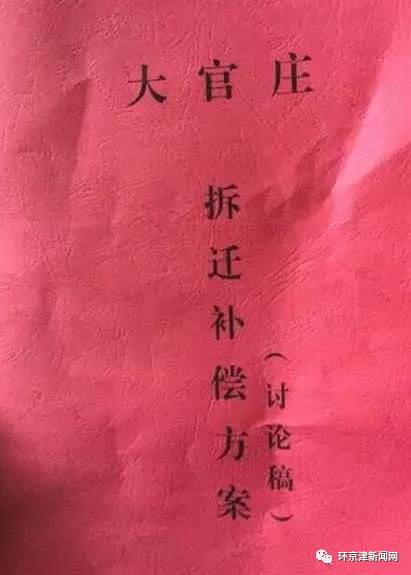 大官庄
拆迁补偿方案
（讨论稿）
环京津新闻网